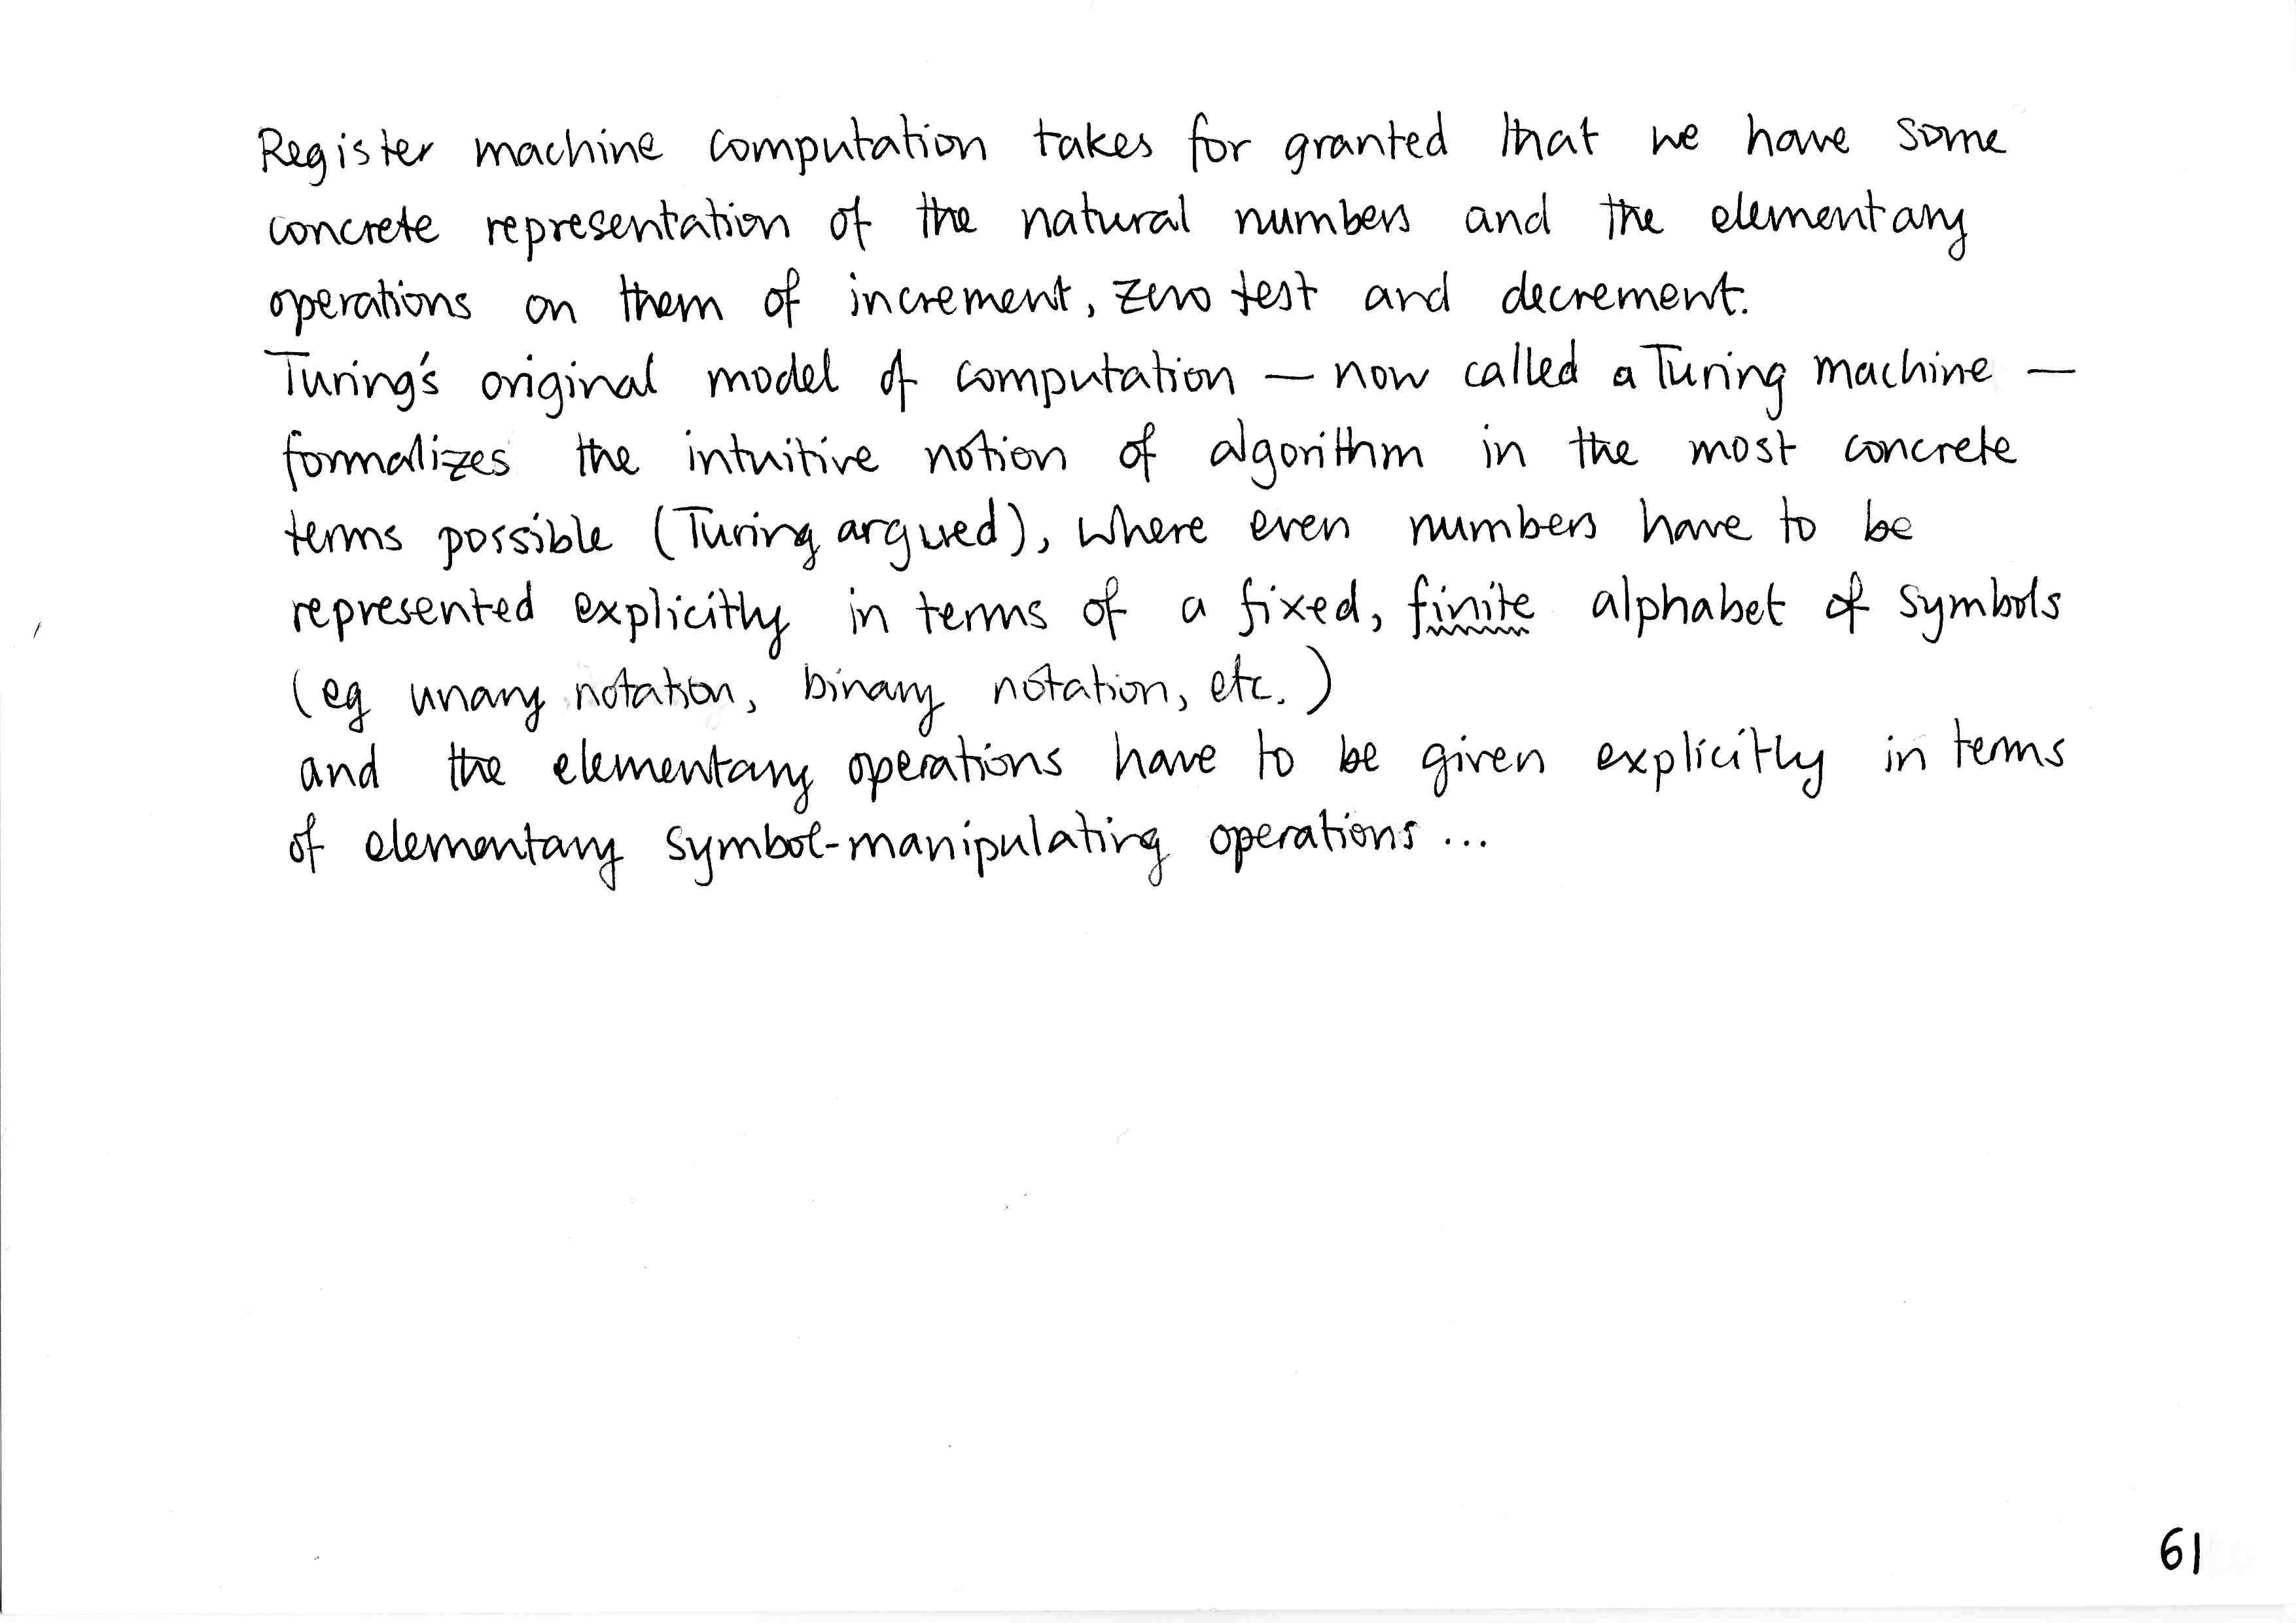 Register machine computation takes for granted that we have some
concrete representation of the natural numbers and the elementary
operations on them of increment, zero test and decrement.
Turing's original model of computation — now called a Turing machine —
formalizes the intuitive notion of algorithm in the most concrete
terms possible (Turing argued), where even numbers have to be
represented explicitly in terms of a fixed, finite alphabet of symbols
(eg unary notation, binary notation, etc.)
and the elementary operations have to be given explicitly in terms
of elementary symbol-manipulating operations ...
61